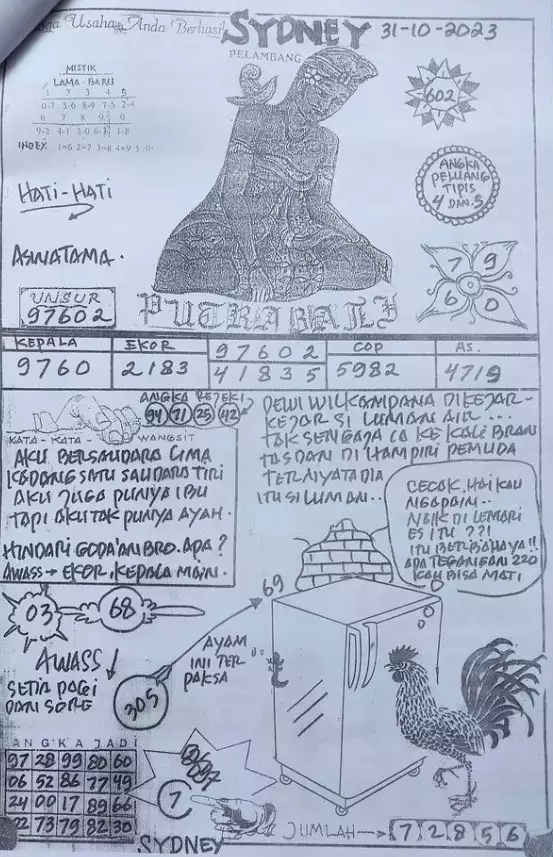 Usaha Anda Berhasil
SYDNEY 31-10-2023
PELAMBANG
MISTIK
LAMA - BARU
1 2 3 4 5
0-7 5-6 8-9 7-5 2-4
6 7 8 9 0
9-2 4-1 3-0 6-3 1-8
INDEX 1=6 2=7 3=8 4=9 5=0
602
ANGKA
PELUANG
TIPIS
4 DAN.5
HATI-HATI
ASWATAMA.
7 9
6 0
UNSUR
97602
PUTRA BALI
KEPALA EKOR 97602 COP AS.
9760 2183 41835 5982 4719
ANGKA REJEKI
94 71 25 42
KATA - KATA - WANGSIT
AKU BERSAUDARA LIMA
KADANG SATU SAUDARA TIRI
AKU JUGA PUNYA IBU
TAPI AKU TAK PUNYA AYAH.
HINDARI GODA'AN BRO. ADA?
AWASS → EKOR, KEPALA MAIN.
DEWI WILKAMPANA DIKEJAR-
KEJAR SI LUMAN AIR....
TAK SENGAJA LA KE KALI BRAN
TAS DAN DI HAMPIRI PEMUDA
TERNYATA DIA
ITU SI LUMAN..
CECAK, HAI KAU
NGAPAIN..
NAIK DI LEMARI
ES ITU ??!
ITU BERBAHAYA!!
ADA TEGANGAN 220
KAU BISA MATI
69
03 68
AWASS
SETIR PAGI
DAN SORE
305
AYAM
INI TER
PAKSA
ANGKA JADI
97 28 99 80 60
06 52 86 77 49
24 00 17 89 66
22 73 79 82 30
7
SYDNEY
JUMLAH → 7 2 8 5 6